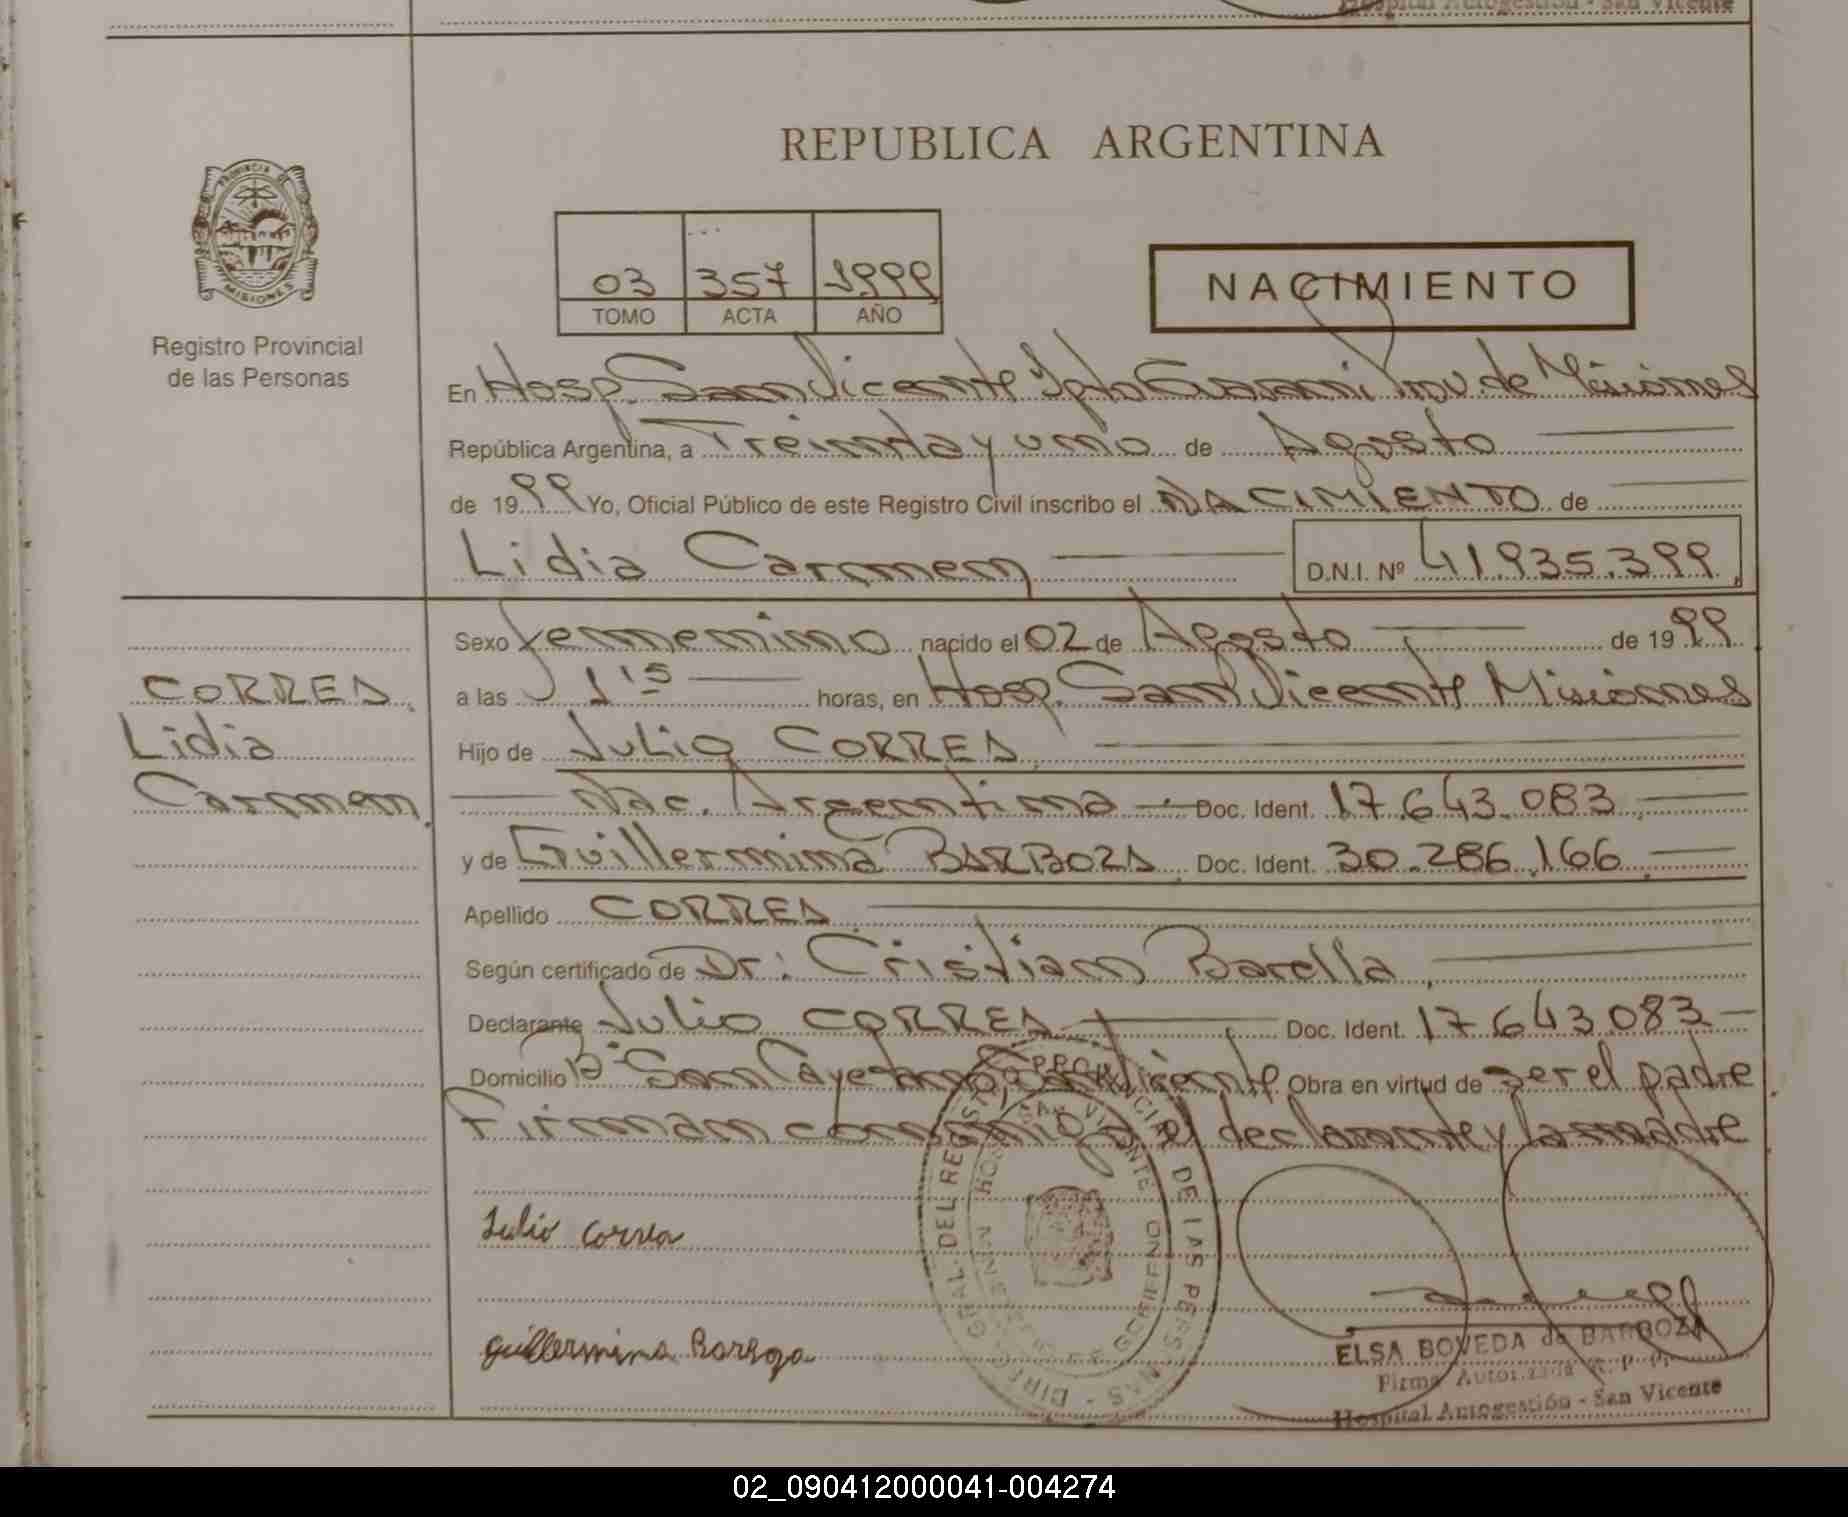 Hospital Autogestión - San Vicente
REPUBLICA ARGENTINA
PROVINCIA DE
MISIONES
Registro Provincial
de las Personas
03 357 1999
TOMO ACTA AÑO
NACIMIENTO
En Hosp. San Vicente Dpto Guarani Prov. de Misiones
República Argentina, a Treinta y uno de Agosto
de 1999 Yo, Oficial Público de este Registro Civil inscribo el NACIMIENTO de
Lidia Carmen D.N.I. Nº 41935.399
Sexo femenino nacido el 02 de Agosto de 1999
CORREA
Lidia
Carmen
a las 1 15 horas, en Hosp. San Vicente Misiones
Hijo de Julio CORREA
Nac. Argentina Doc. Ident. 17.643.083
y de Guillermina BARBOZA Doc. Ident. 30.286.166
Apellido CORREA
Según certificado de Dr. Cristian Barella
Declarante Julio CORREA Doc. Ident. 17.643.083
Domicilio Bº San Cayetano, San Vicente Obra en virtud de ser el padre
Firman conmigo el declarante y la madre
Julio Correa
guillermina
DEL REGISTRO PROVINCIAL DE LAS PERSONAS - SAN VICENTE
ELSA BOVEDA de BARBOZA
Firma Autorizada R. P. P.
Hospital Autogestión - San Vicente
02_090412000041-004274